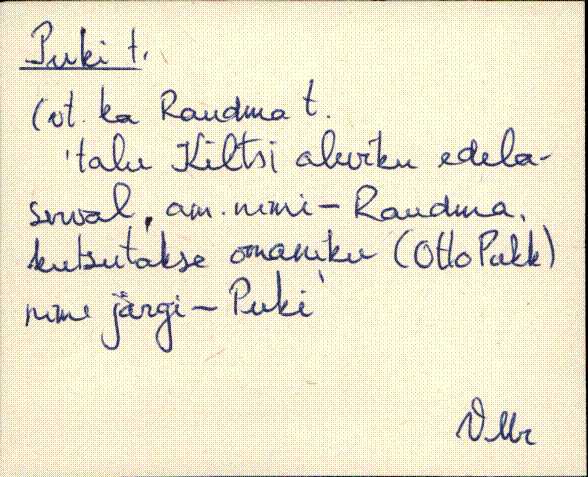 Puki t.
(vt. ka Raudma t.
'talu Kiltsi aleviku edela-
serval, am. nimi – Raudma,
kutsutakse omaniku (Otto Pukk)
nime järgi – Puki'
VMr